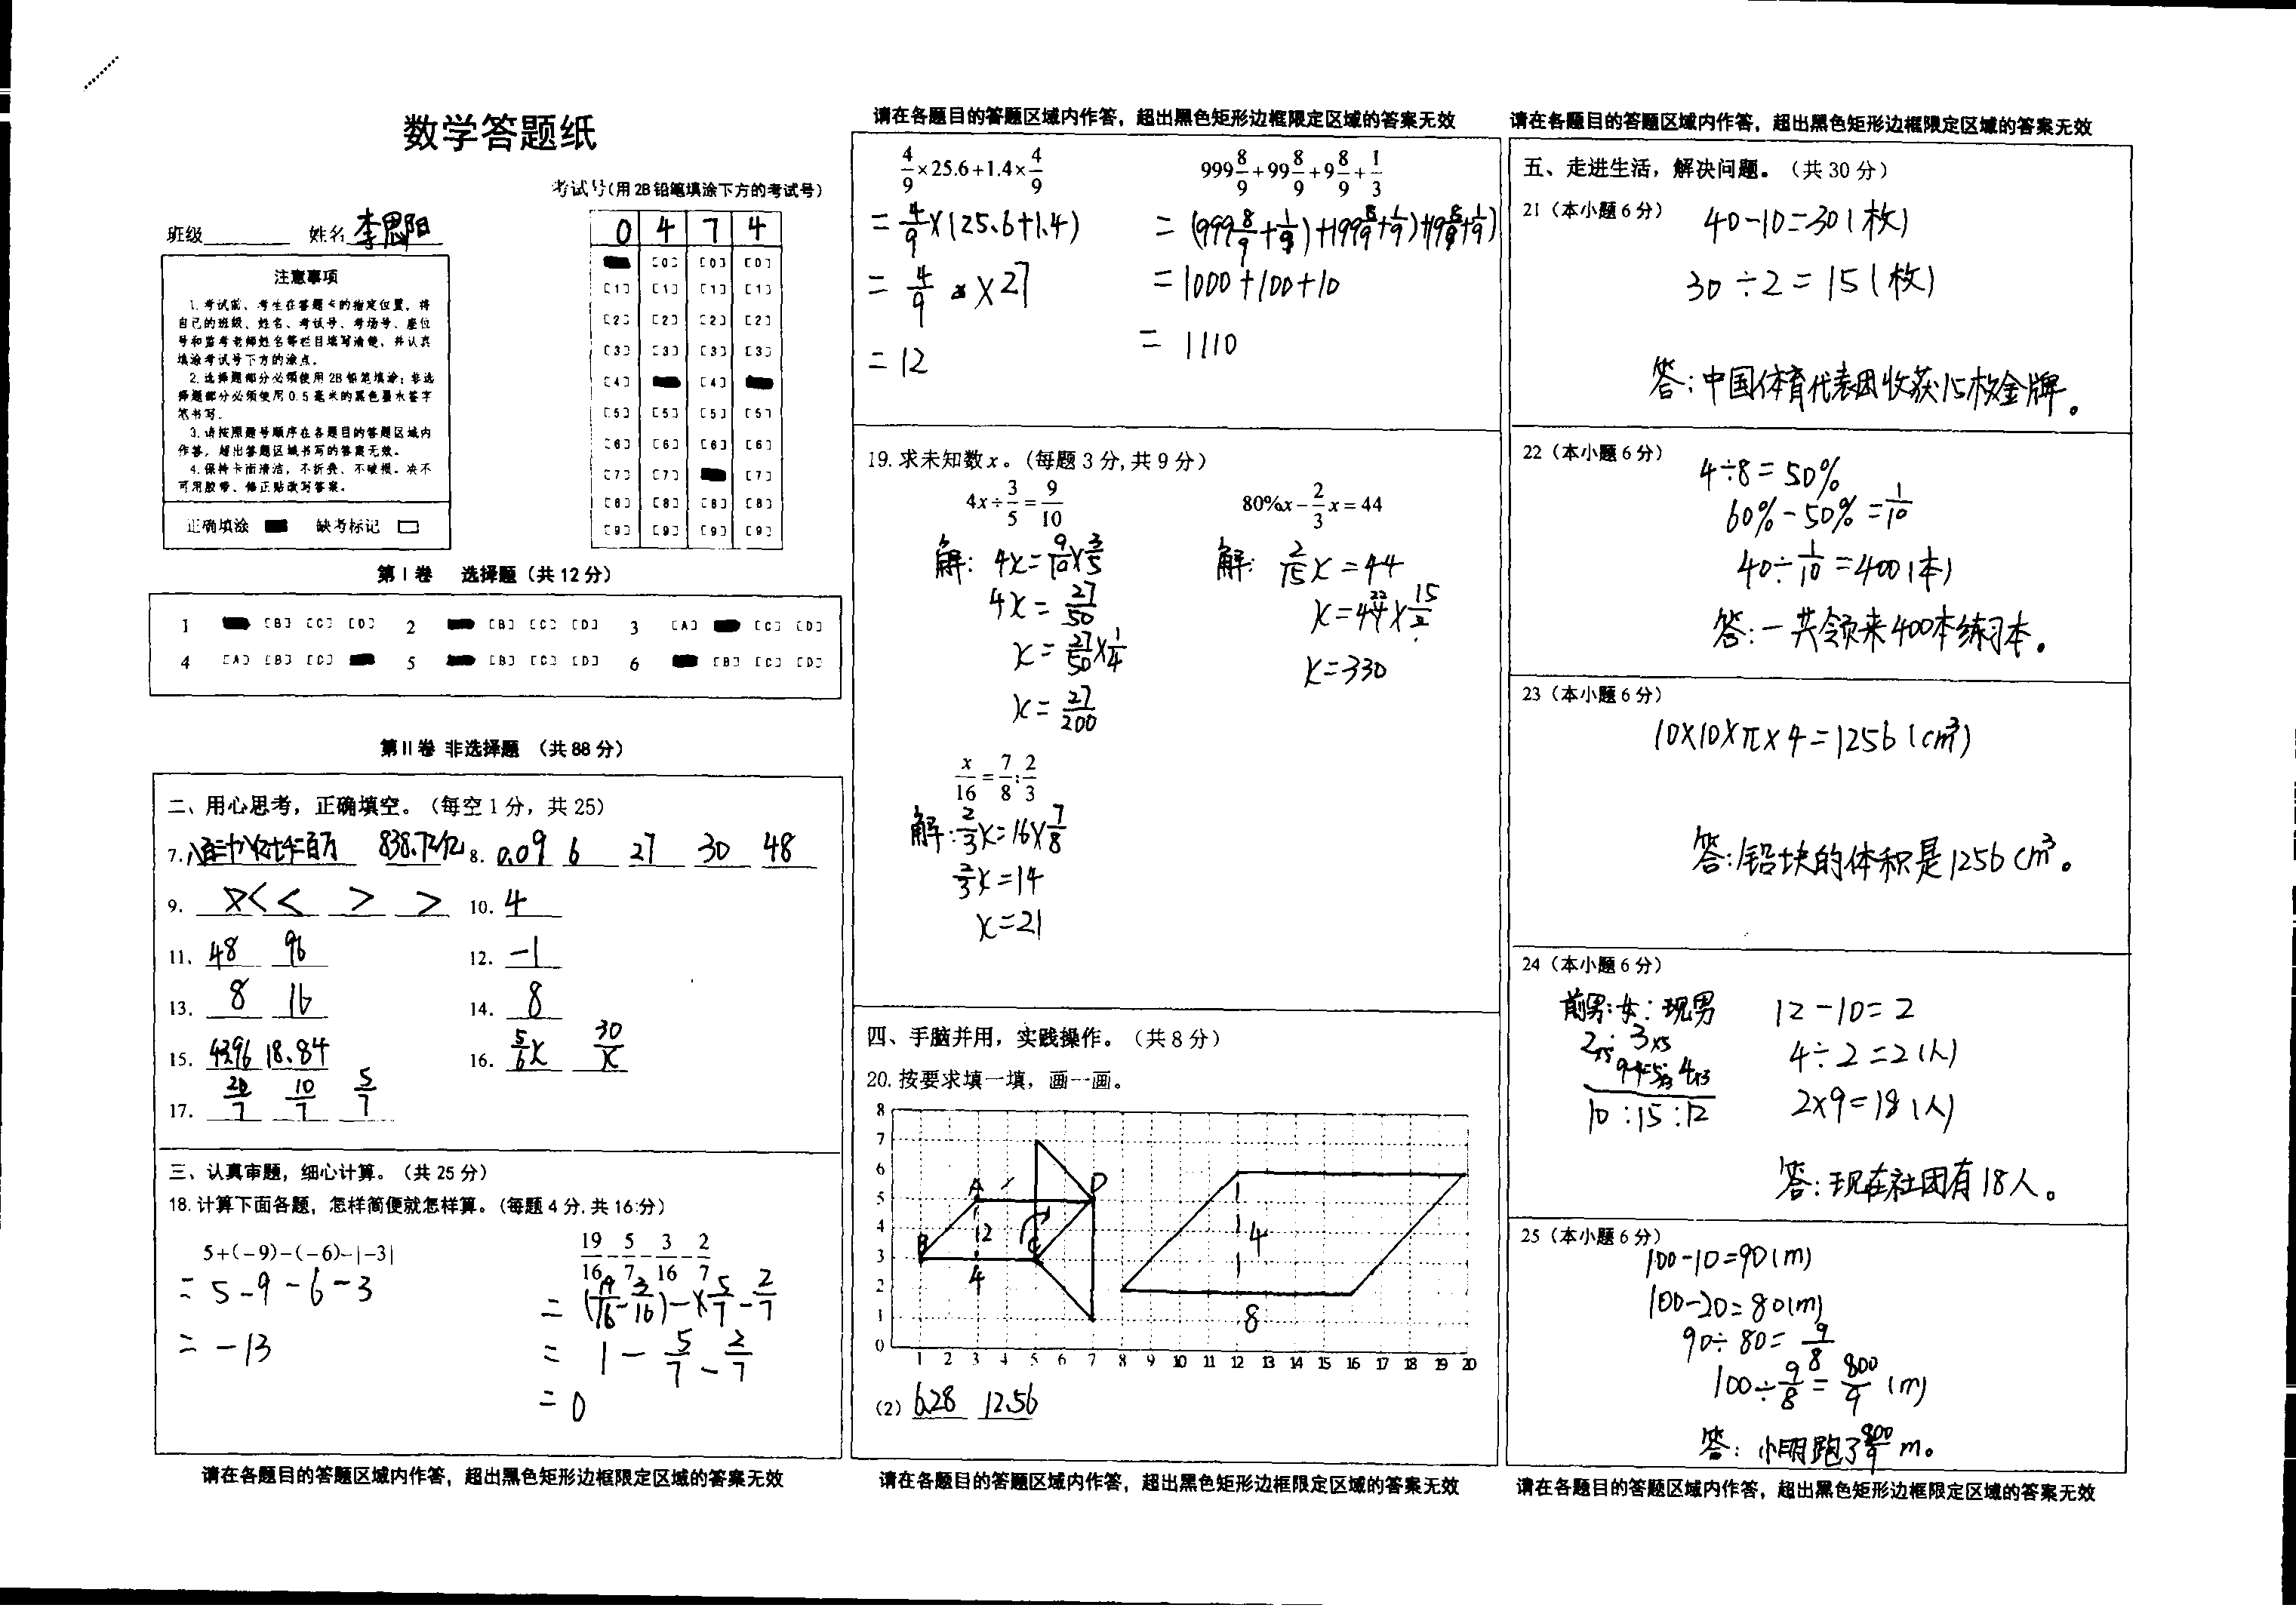 数学答题纸
考试号(用2B铅笔填涂下方的考试号)
班级 姓名 李思阳
0 4 7 4
[0] [0] [0]
[1] [1] [1] [1]
[2] [2] [2] [2]
[3] [3] [3] [3]
[4] [4]
[5] [5] [5] [5]
[6] [6] [6] [6]
[7] [7] [7]
[8] [8] [8] [8]
[9] [9] [9] [9]
注意事项
1.考试前、考生在答题卡的指定位置，将
自己的班级、姓名、考试号、考场号、座位
号和监考老师姓名等栏目填写清楚，并认真
填涂考试号下方的涂点。
2.选择题部分必须使用2B铅笔填涂；非选
择题部分必须使用0.5毫米的黑色墨水签字
笔书写.
3.请按照题号顺序在各题目的答题区域内
作答，超出答题区域书写的答案无效。
4.保持卡面清洁，不折叠、不破损。决不
可用胶带、修正贴改写答案。
正确填涂 缺考标记
第Ⅰ卷 选择题（共12分）
1 [B] [C] [D] 2 [B] [C] [D] 3 [A] [C] [D]
4 [A] [B] [C] 5 [B] [C] [D] 6 [B] [C] [D]
第Ⅱ卷 非选择题 （共88分）
二、用心思考，正确填空。（每空1分，共25）
7. 838.72亿 8. 0.09 6 27 30 48
9. < < > > 10. 4
11. 48 96 12. -1
13. 8 16 14. 8
15. 43.96 18.84 16. 5/6x 30/x
17. 20/7 10/7 5/7
三、认真审题，细心计算。（共25分）
18.计算下面各题，怎样简便就怎样算。（每题4分,共16分）
5+(−9)−(−6)−|−3|
= 5-9-6-3
= -13
19/16−5/7−3/16−2/7
= (19/16-3/16)-5/7-2/7
= 1-5/7-2/7
= 0
请在各题目的答题区域内作答，超出黑色矩形边框限定区域的答案无效
请在各题目的答题区域内作答，超出黑色矩形边框限定区域的答案无效
4/9×25.6+1.4×4/9
= 4/9×(25.6+1.4)
= 4/9×27
= 12
999 8/9+99 8/9+9 8/9+1/3
= (999 8/9+1/9)+(99 8/9+1/9)+(9 8/9+1/9)
= 1000+100+10
= 1110
19.求未知数x。（每题3分,共9分）
4x÷3/5=9/10
解: 4x=9/10×3/5
4x=27/50
x=27/50×1/4
x=27/200
80%x−2/3x=44
解: 2/15x=44
x=44×15/2
22
x=330
x/16=7/8:2/3
解:2/3x=16×7/8
2/3x=14
x=21
四、手脑并用，实践操作。（共8分）
20.按要求填一填，画一画。
8
7
6
5
4
3
2
1
0
A D
B C
2
4
4
8
1 2 3 4 5 6 7 8 9 10 11 12 13 14 15 16 17 18 19 20
（2） 6.28 12.56
请在各题目的答题区域内作答，超出黑色矩形边框限定区域的答案无效
请在各题目的答题区域内作答，超出黑色矩形边框限定区域的答案无效
五、走进生活，解决问题。（共30分）
21（本小题6分）
40-10=30(枚)
30÷2=15(枚)
答:中国体育代表团收获15枚金牌。
22（本小题6分）
4÷8=50%
60%-50%=1/10
40÷1/10=400(本)
答:一共领来400本练习本。
23（本小题6分）
10×10×π×4=1256(cm³)
答:铅块的体积是1256cm³。
24（本小题6分）
前男:女:现男
2×5:3×5
5×3:4×3
10:15:12
12-10=2
4÷2=2(人)
2×9=18(人)
答:现在社团有18人。
25（本小题6分）
100-10=90(m)
100-20=80(m)
90÷80=9/8
100÷9/8=800/9(m)
答: 小明跑了800/9m。
请在各题目的答题区域内作答，超出黑色矩形边框限定区域的答案无效